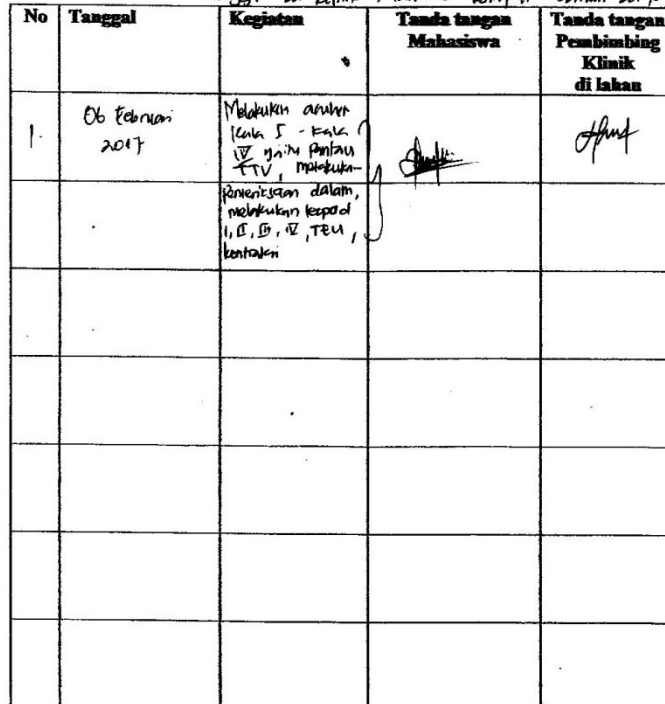 No Tanggal Kegiatan Tanda tangan Mahasiswa Tanda tangan Pembimbing Klinik di lahan
1. 06 Februari 2017
Melakukan asuhan
Kala I - Kala
IV yaitu Pantau
TTV, melakukan
Pemeriksaan dalam,
melakukan leopold
I, II, III, IV, TFU,
kontraksi